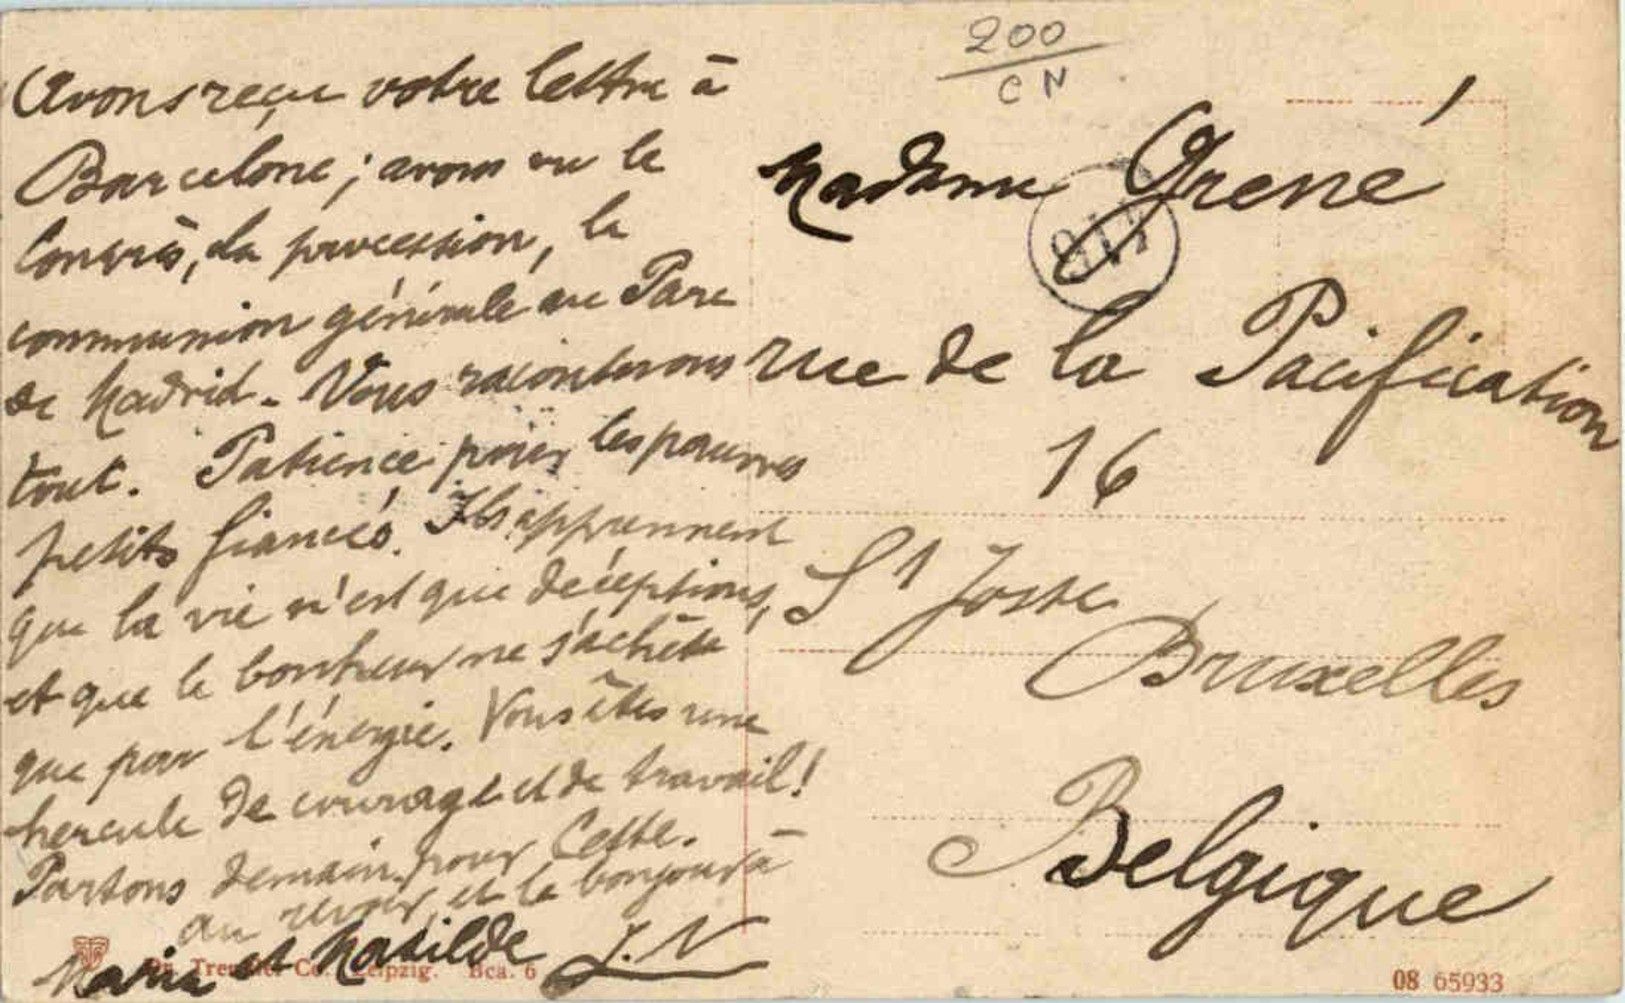 200
CN
Avons reçu votre lettre à
Barcelone; avons vu le
Congrès, la procession, la
communion générale au Parc
de Madrid. Vous raconterons
tout. Patience pour les pauvres
petits fiancés. Ils apprennent
que la vie n'est que déceptions,
et que le bonheur ne s'achète
que par l'énergie. Vous êtes une
hercule de courage et de travail!
Partons demain pour Cette.
au revoir et le bonjour à
Maria et Matilde J.N
Madame Grené
rue de la Pacification
16
St Josse
Bruxelles
Belgique
Trenkler Co. Leipzig. Bca. 6
08 65933